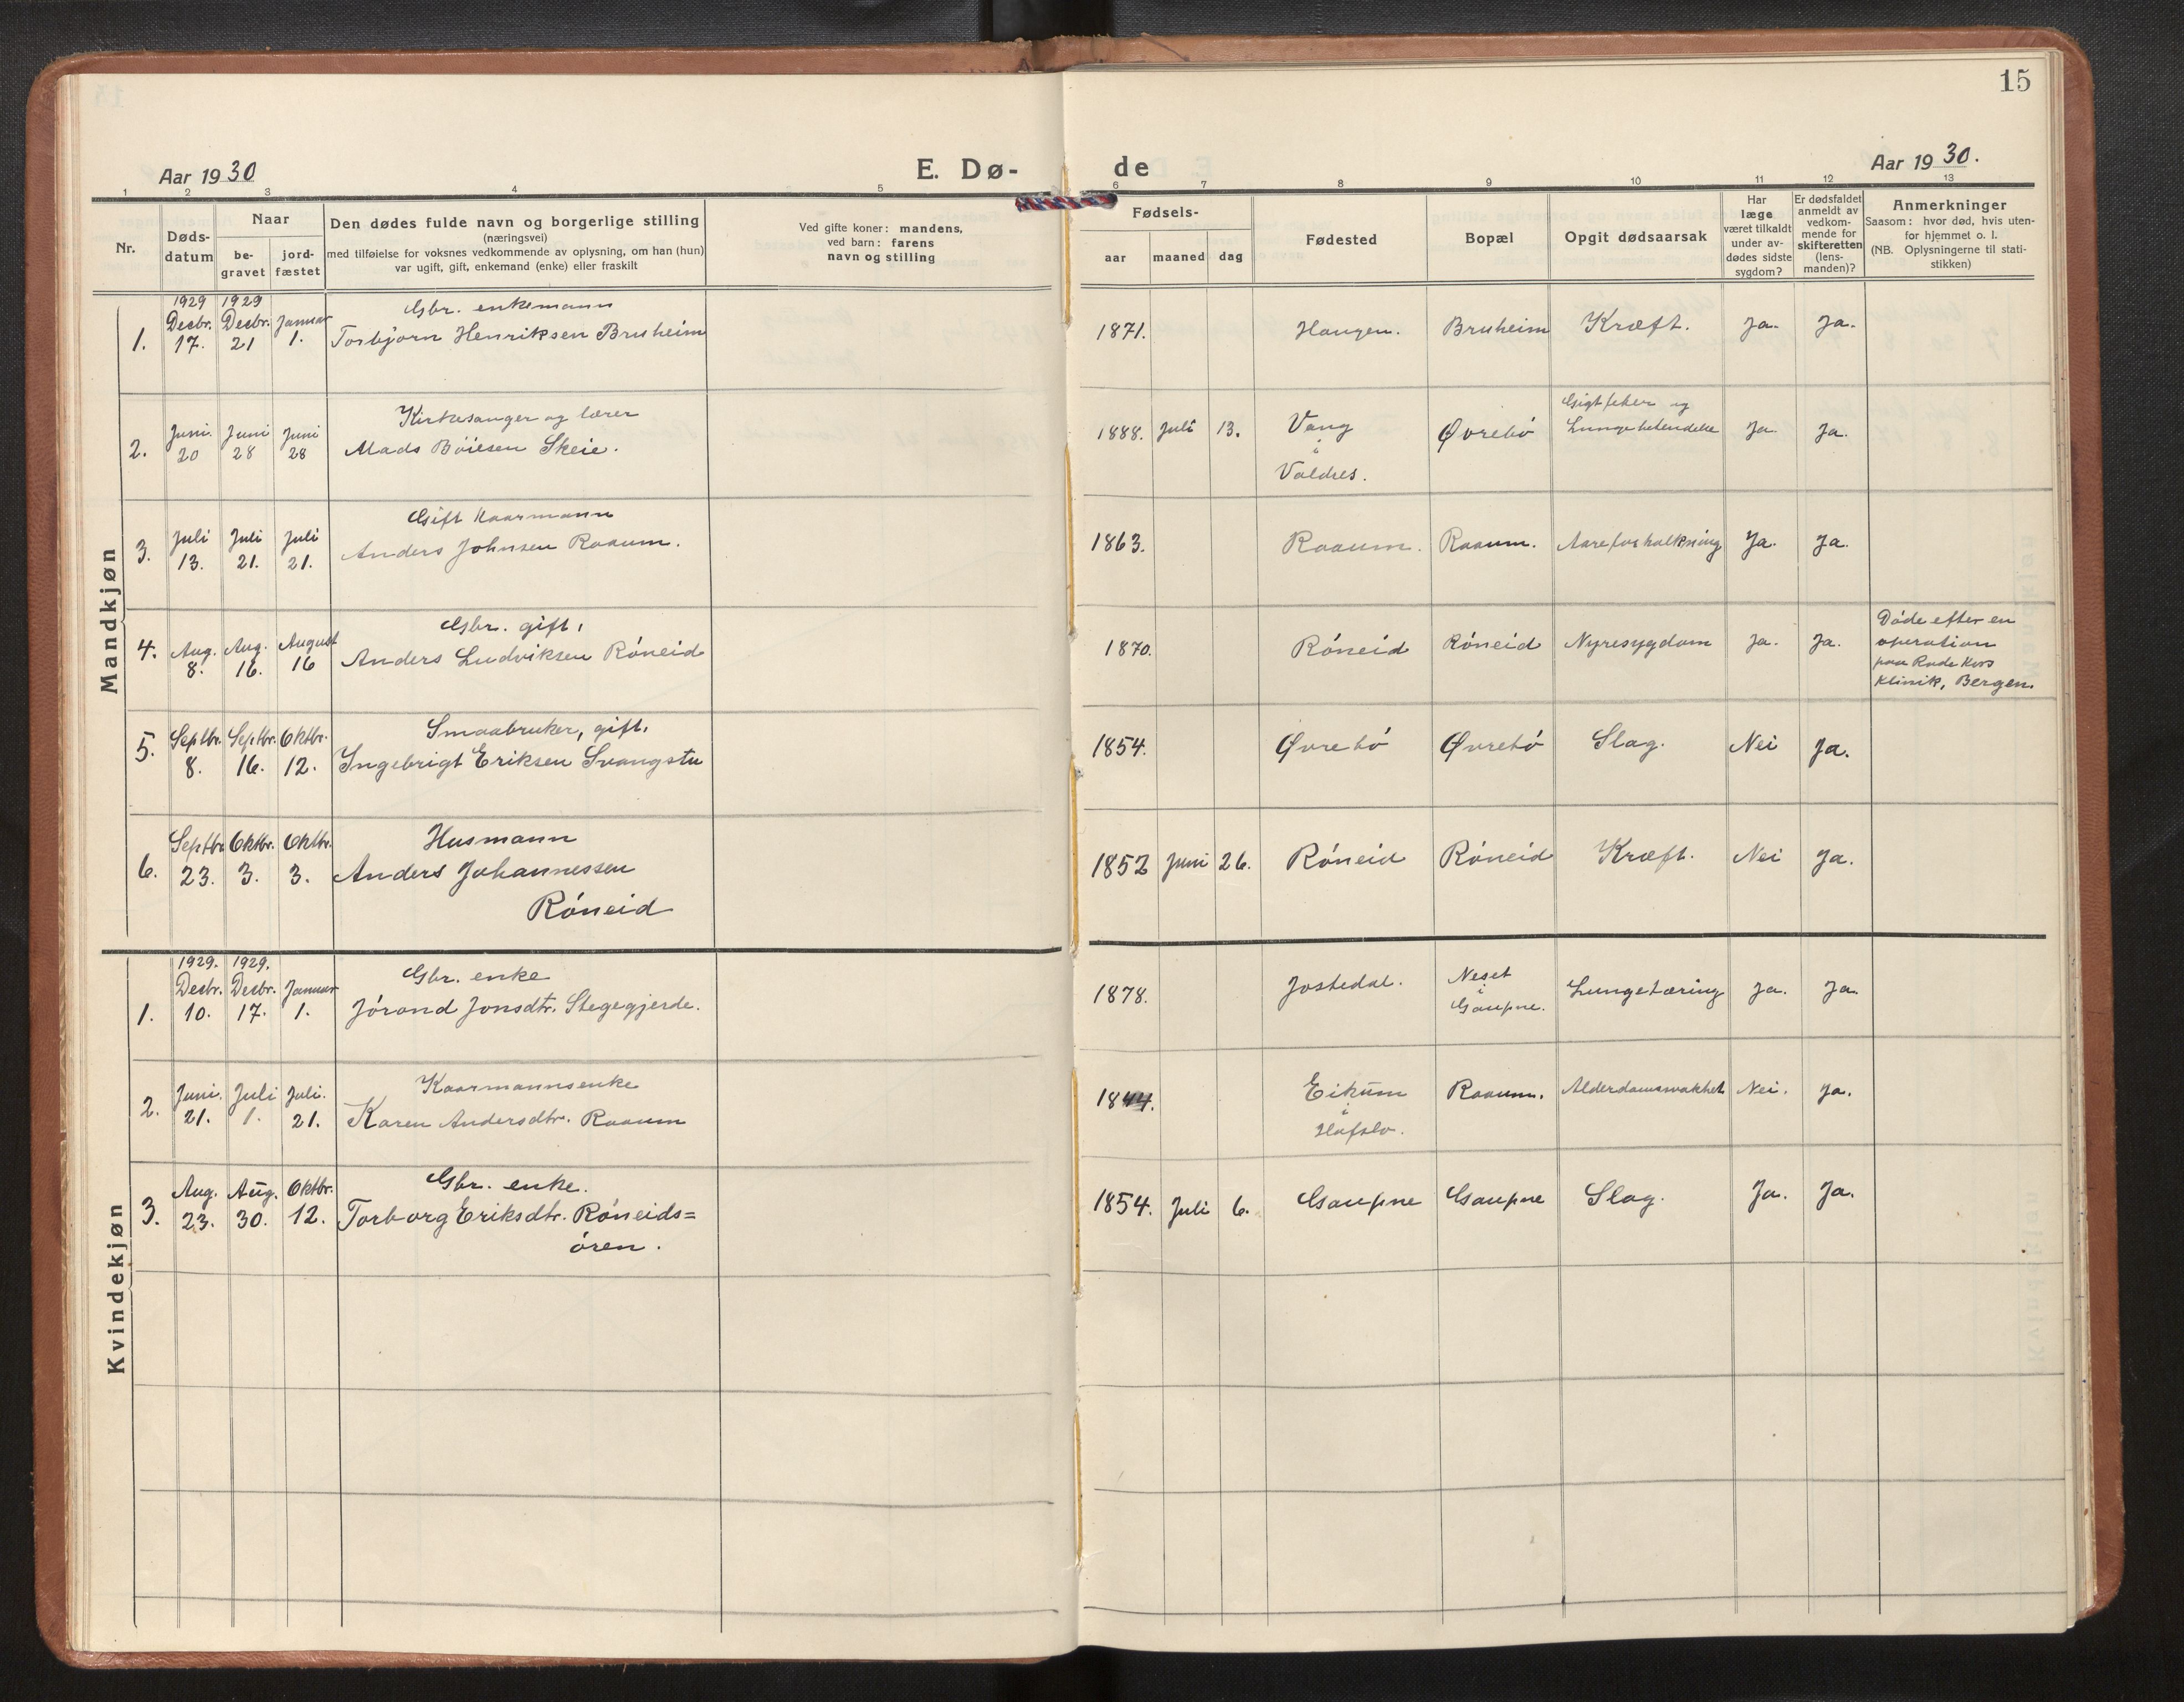 15
Aar 1930
E. Dø-
de
Aar 1930.
1 2 3 4 5 6 7 8 9 10 11 12 13
Nr.
Døds-
datum
Naar
be-
gravet
jord-
fæstet
Den dødes fulde navn og borgerlige stilling
(næringsvei)
med tilføielse for voksnes vedkommende av oplysning, om han (hun)
var ugift, gift, enkemand (enke) eller fraskilt
Ved gifte koner: mandens,
ved barn: farens
navn og stilling
Fødsels-
aar
maaned
dag
Fødested
Bopæl
Opgit dødsaarsak
Har
læge
været tilkaldt
under av-
dødes sidste
sygdom?
Er dødsfaldet
anmeldt av
vedkom-
mende for
skifteretten
(lens-
manden)?
Anmerkninger
Saasom: hvor død, hvis uten-
for hjemmet o. l.
(NB. Oplysningerne til stati-
stikken)
Mandkjøn
1.
1929
Decbr.
17.
1929
Decbr.
21
Januar
1.
Gbr. enkemann
Torbjørn Henriksen Bruheim
1871.
Haugen.
Bruheim
Kræft.
Ja.
Ja.
2.
Juni.
20
Juni
28
Juni
28
Kirkesanger og lærer
Mads Böiesen Skeie.
1888. Juli 13.
Vang
i
Valdres.
Øvrebó
Gigtfeber og
Lungebetendelse
Ja
Ja.
3.
Juli
13.
Juli
21.
Juli
21.
Gift Kaarmann
Anders Johnsen Raaum.
1863.
Raaum.
Raaum.
Aareforkalkning
Ja.
Ja.
4.
Aug.
8.
Aug.
16.
August
16
Gbr. gift.
Anders Ludviksen Róneid
1870.
Róneid
Róneid
Nyresygdom
Ja.
Ja.
Döde efter en
operation
paa Røde Kors
Klinik, Bergen.
5.
Septbr.
8.
Septbr.
16.
Oktbr.
12.
Smaabruker, gift.
Ingebrigt Eriksen Svangstu
1854.
Øvrebó
Øvrebó
Slag.
Nei
Ja.
6.
Septbr.
23.
Oktbr.
3.
Oktbr.
3.
Husmann
Anders Johannessen
Róneid
1852 Juni 26.
Róneid
Róneid
Kræft.
Nei
Ja.
Kvindekjøn
1.
1929.
Decbr.
10.
1929.
Decbr.
17.
Januar
1.
Gbr. enke
Jórand Jonsdtr. Stegegjerde.
1878.
Jostedal.
Neset
i
Gaupne.
Lungetæring
Ja.
Ja.
2.
Juni.
21.
Juli
1.
Juli.
21.
Kaarmannsenke
Karen Andersdtr. Raaum
1844.
Eikum
i
Hafslo.
Raaum.
Alderdomssvakhet
Nei.
Ja.
3.
Aug.
23.
Aug.
30.
Oktbr.
12.
Gbr. enke.
Torborg Eriksdtr. Róneids=
óren.
1854. Juli 6.
Gaupne
Gaupne
Slag.
Ja.
Ja.